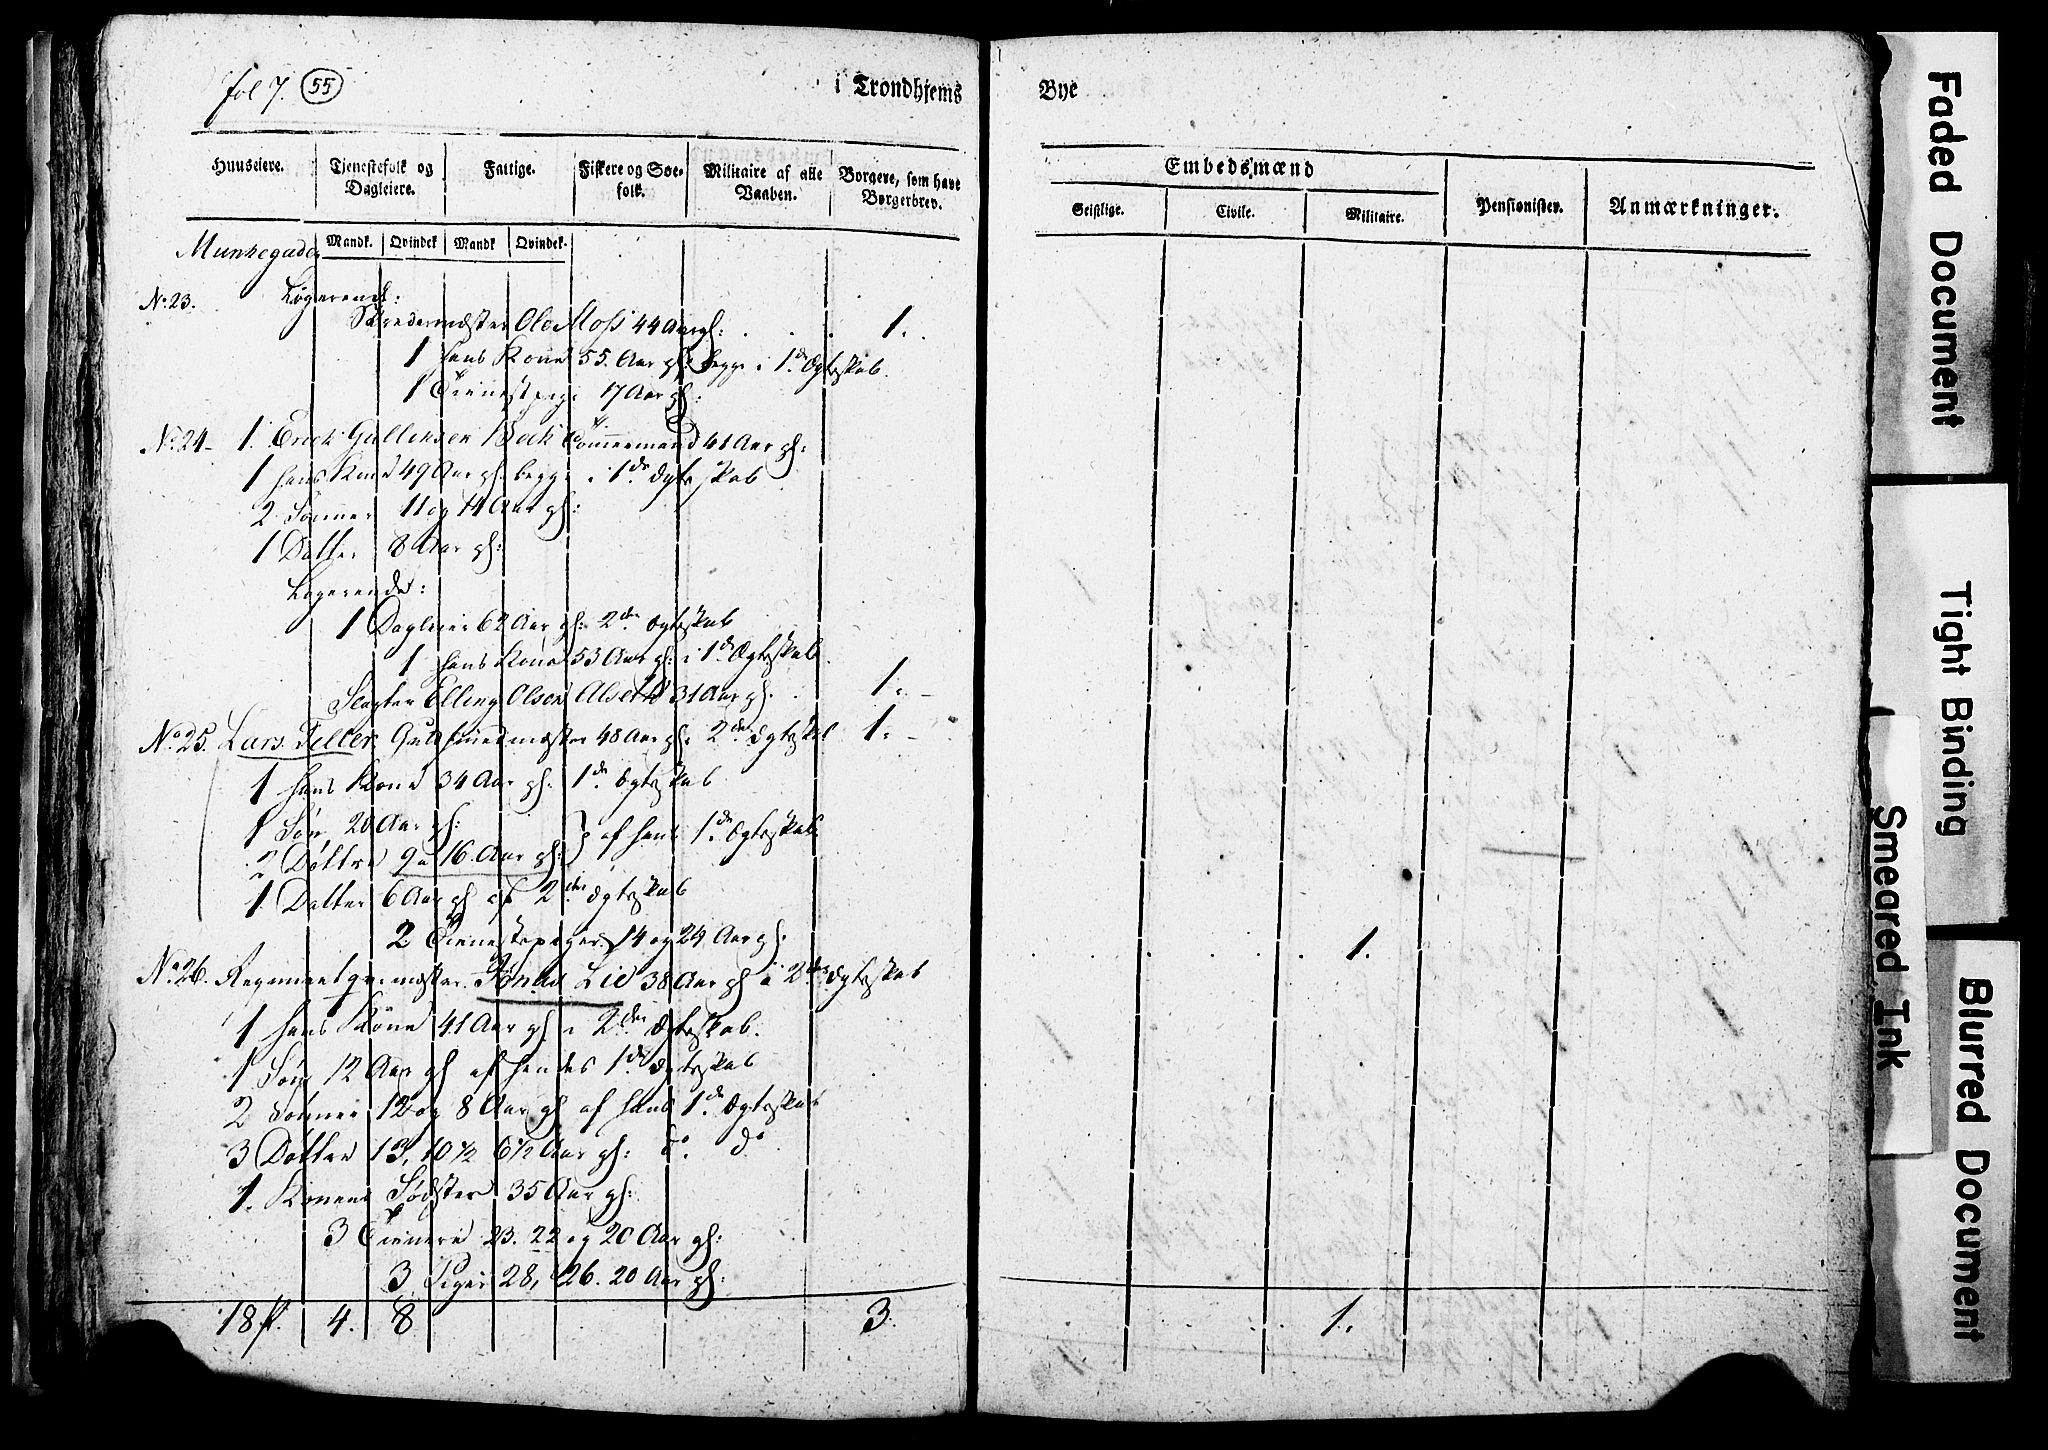 fol 7. 55
i Trondhjems Bye
Huuseiere. Tjenestefolk og Dagleiere. Fattige. Fiskere og Søefolk. Militaire af alle Vaaben. Borgere, som have Borgerbrev.
Embedsmænd
Geistlige. Civile. Militaire. Pensionister. Anmærkninger.
Mandk. Qvindek Mandk Qvindek.
Munkegaden
No. 23. Logerende:
Skredermæster Ole Moss 44 Aar gl: . . . 1.
1 hans Kone 55. Aar gl: begge i 1de Ægteskab.
1 Tienestpige 17 Aar gl:
No. 24- 1. Erich Gullichsen Bech Tømmermand 41 Aar gl:
1 hans Kone 49 Aar gl. begge i 1de Ægteskab
2 Sønner 11 og 14 Aar gl:
1 Datter 8 Aar gl:
Logerende:
1 Dagleier 62 Aar gl: 2den Ægteskab
1 hans Kone 53 Aar gl: i 1de Ægteskab.
Slagter Elling Olsen 31 Aar gl. . 1. -
No. 25. Lars Feller Guldsmedmæster 48 Aar gl. 2det Ægteskab 1. -
1 hans Kone 34 Aar gl. 1de Ægteskab
1 Søn 20 Aar gl: } af hans 1de Ægteskab.
2 Døttre 9 a 16. Aar gl:
1. Datter 6 Aar gl af 2det Ægteskab
2 Tienestepiger 14 og 24 Aar gl:
No. 26. Regimentqvarmester Lie 38 Aar gl i 2det Ægteskab . . . 1.
1 hans Kone 41 Aar gl. i 2det Ægteskab.
1 Søn 12 Aar gl af hendes 1de Ægteskab
2 Sønner 12 og 8 Aar gl af hans 1de Ægteskab
3 Døttre 13, 10 1/2 6 1/2 Aar gl: do. do
1. Konens Södster 35 Aar gl:
3 Tienere 23. 22 og 20 Aar gl:
3 Piger 28, 26. 20 Aar gl:
18 4. 8 3. 1.
Faded Document
Tight Binding
Smeared Ink
Blurred Document